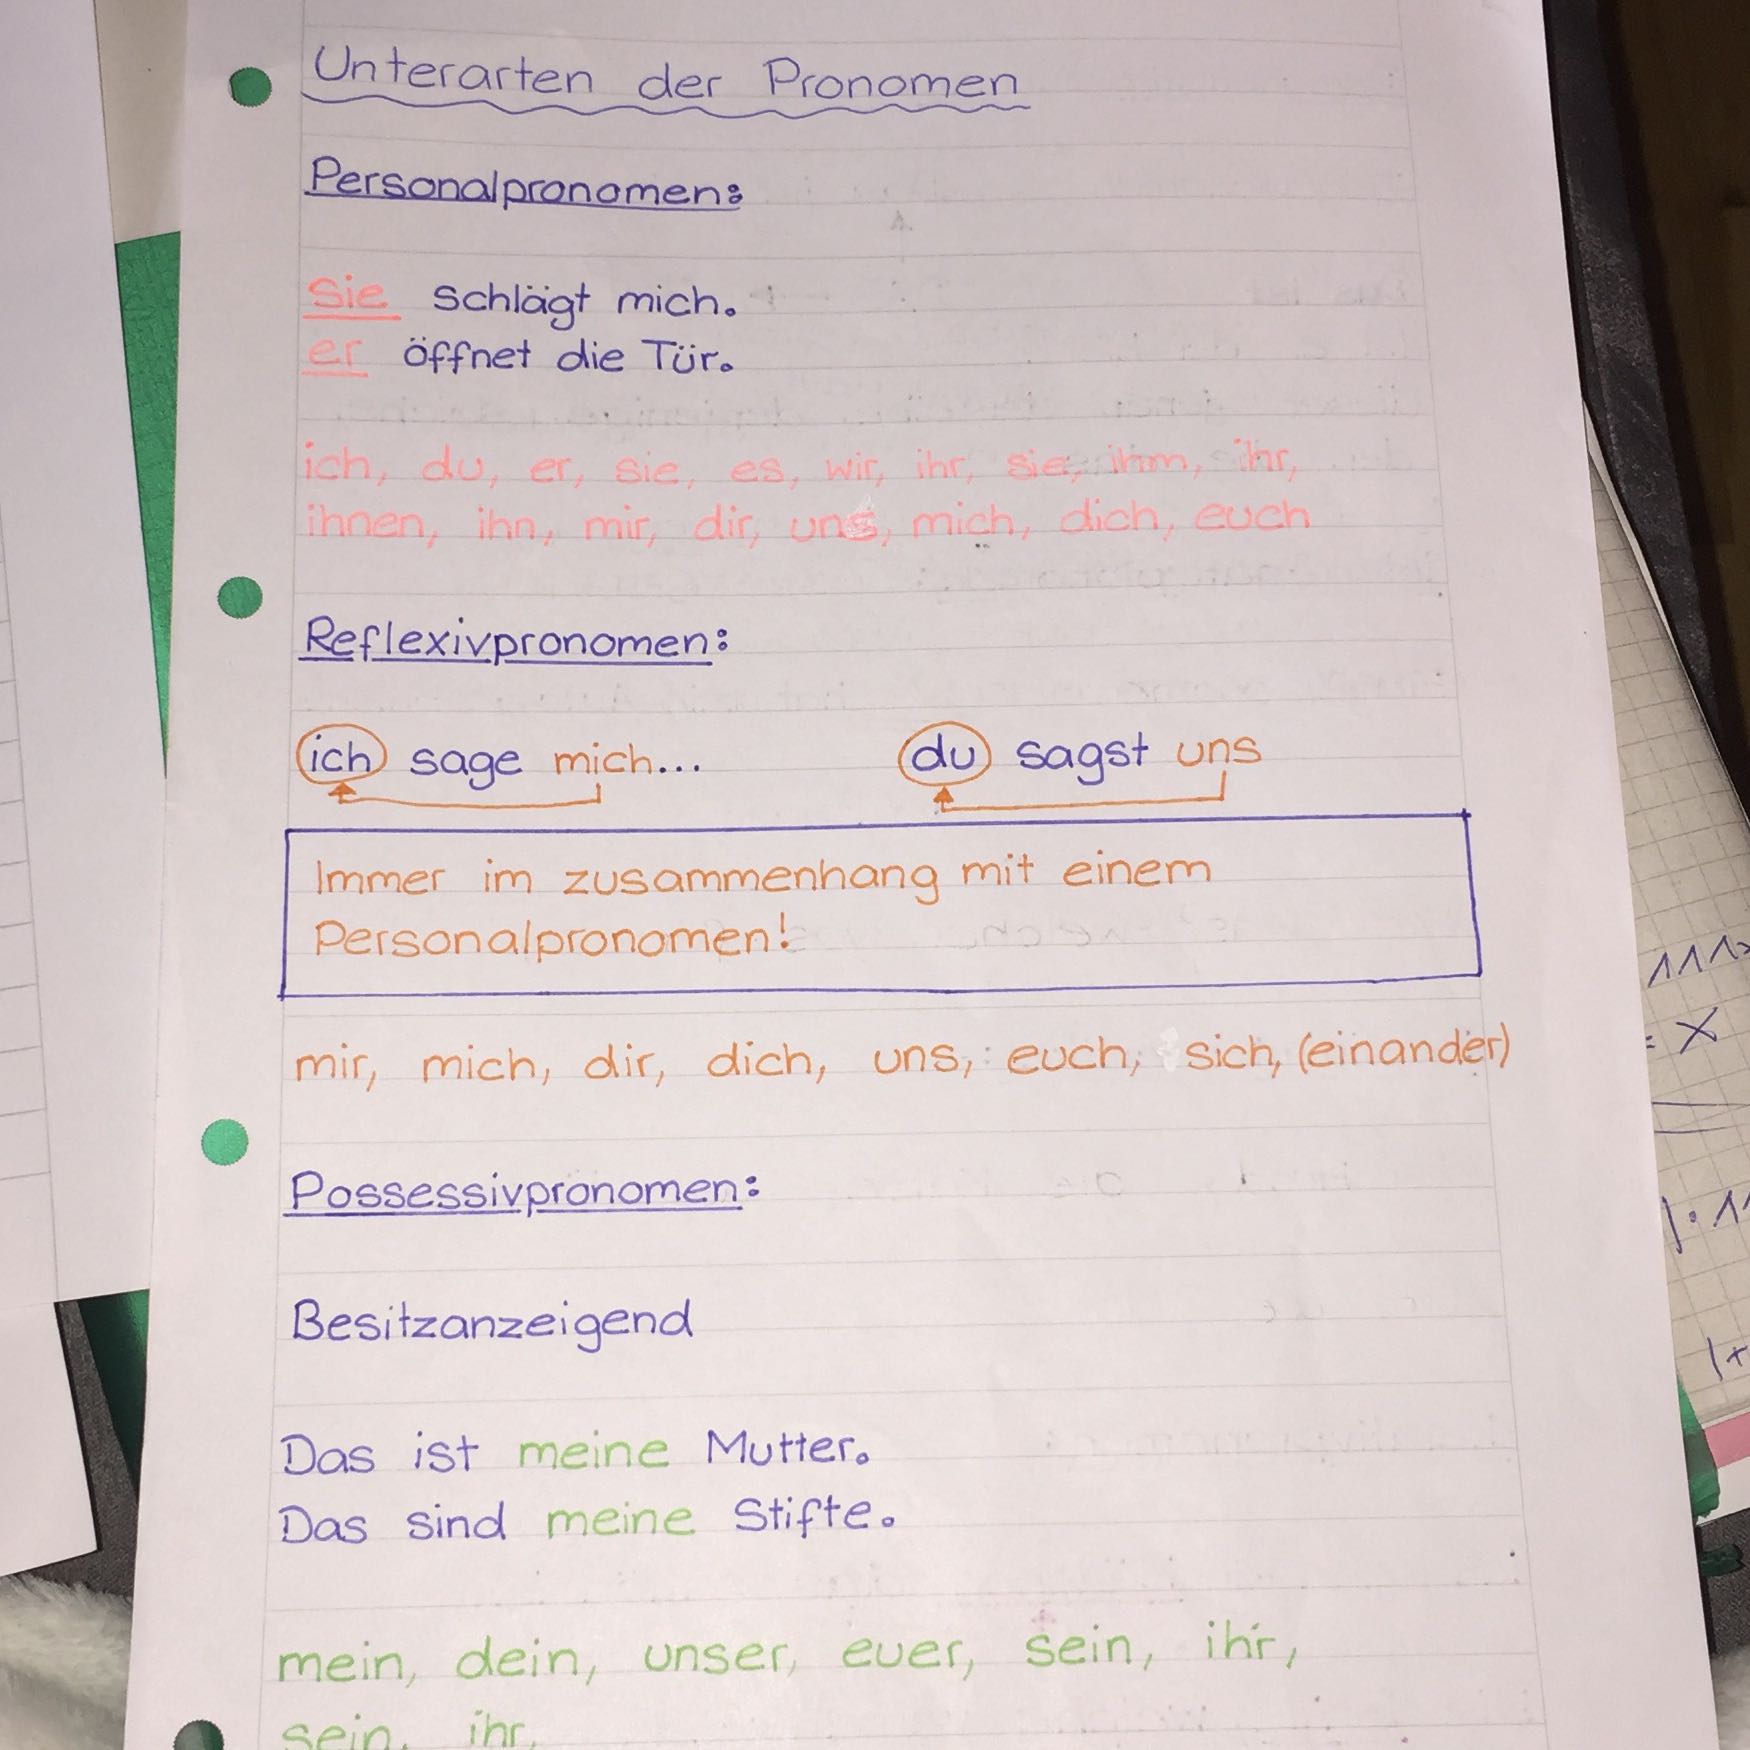 Unterarten der Pronomen
Personalpronomen:
sie schlägt mich.
er öffnet die Tür.
ich, du, er, sie, es, wir, ihr, sie, ihm, ihr,
ihnen, ihn, mir, dir, uns, mich, dich, euch
Reflexivpronomen:
ich sage mich... du sagst uns
Immer im zusammenhang mit einem
Personalpronomen!
mir, mich, dir, dich, uns, euch, sich, (einander)
Possessivpronomen:
Besitzanzeigend
Das ist meine Mutter.
Das sind meine Stifte.
mein, dein, unser, euer, sein, ihr,
sein, ihr,
= X